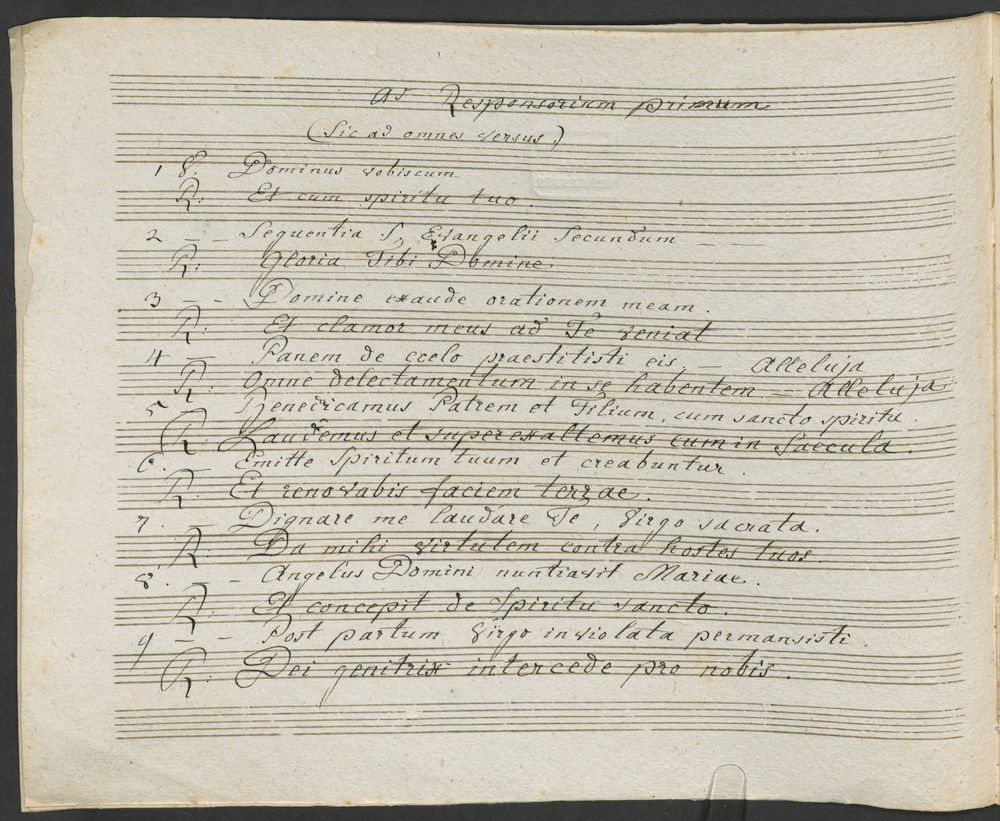 Ad Responsorium primum
(Sic ad omnes versus.)
1 V. Dominus vobiscum
R: Et cum spiritu tuo.
2 — — Sequentia S. Evangelii Secundum
R: Gloria Tibi Domine.
3 — — Domine exaude orationem meam.
R: Et clamor meus ad Te veniat
4 — Panem de coelo praestitisti eis, — Alleluja
R: Omne delectamentum in se habentem — Alleluja
5. Benedicamus Patrem et Filium, cum sancto spiritu.
R: Laudemus et superexaltemus eum in Saecula.
6. — Emitte Spiritum tuum et creabuntur.
R: Et renovabis faciem terrae.
7. — — Dignare me laudare Te, Virgo sacrata.
R: Da mihi virtutem contra hostes tuos.
8. — — Angelus Domini nuntiavit Mariae.
R: Et concepit de Spiritu sancto.
9 — — Post partum Virgo inviolata permansisti.
R: Dei genitrix intercede pro nobis.